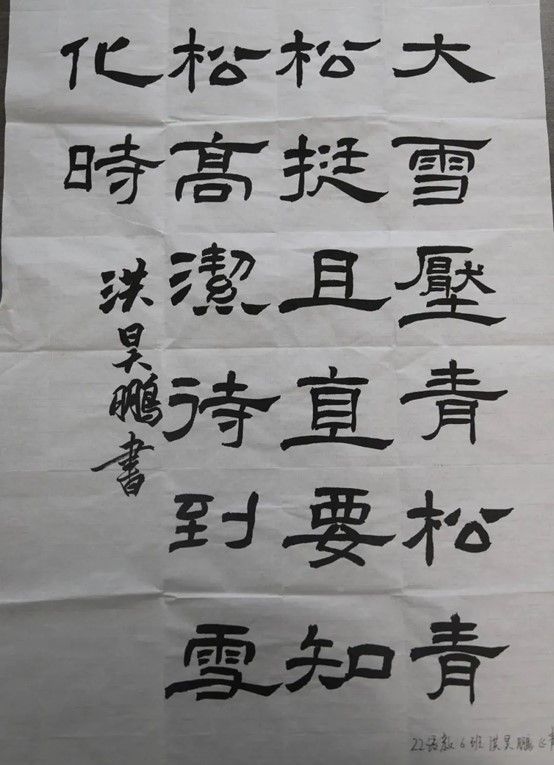 大雪壓青松青
松挺且直要知
松高潔待到雪
化時
洪昊鵬書
6班 洪昊鹏